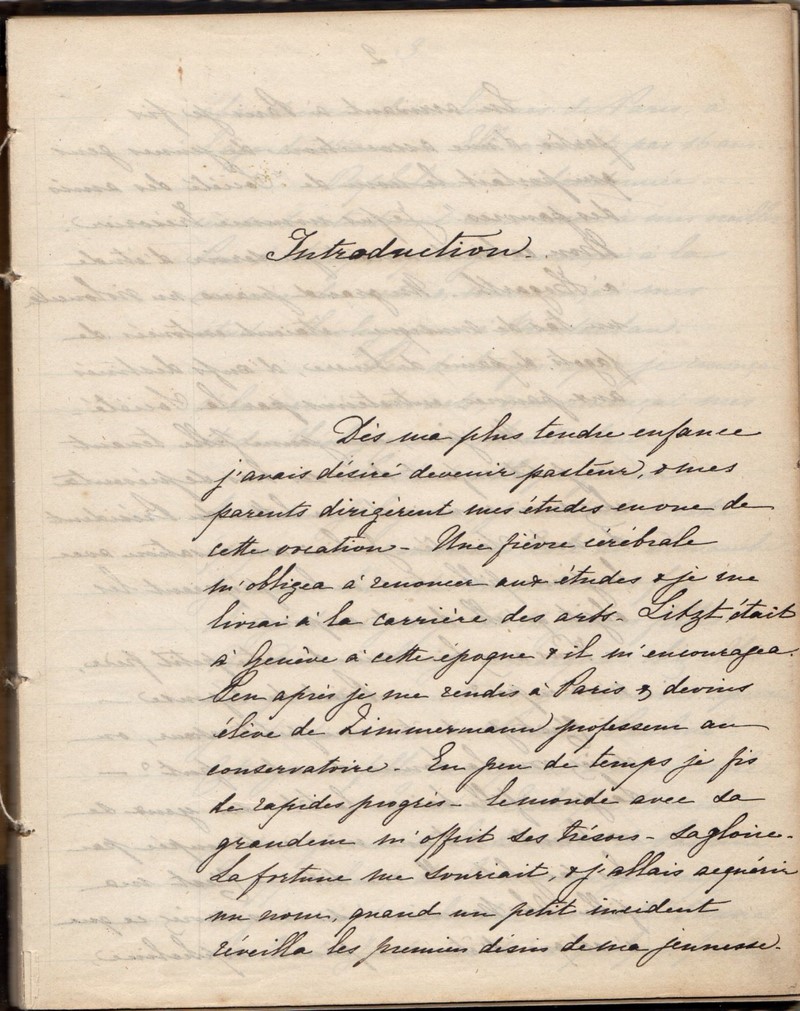 Introduction.
Dès ma plus tendre enfance
j'avais désiré devenir pasteur, & mes
parents dirigèrent mes études en vue de
cette vocation - Une fièvre cérébrale
m'obligea à renoncer aux études & je me
livrai à la carrière des arts - Litzt était
à Genève à cette époque & il m'encouragea.
Peu après je me rendis à Paris & devins
élève de Zimmermann professeur au
conservatoire - En peu de temps je fis
de rapides progrès - le monde avec sa
grandeur m'offrit ses trésors - sa gloire -
La fortune me souriait, & j'allais acquérir
un nom, quand un petit incident
réveilla les premiers désirs de ma jeunesse -